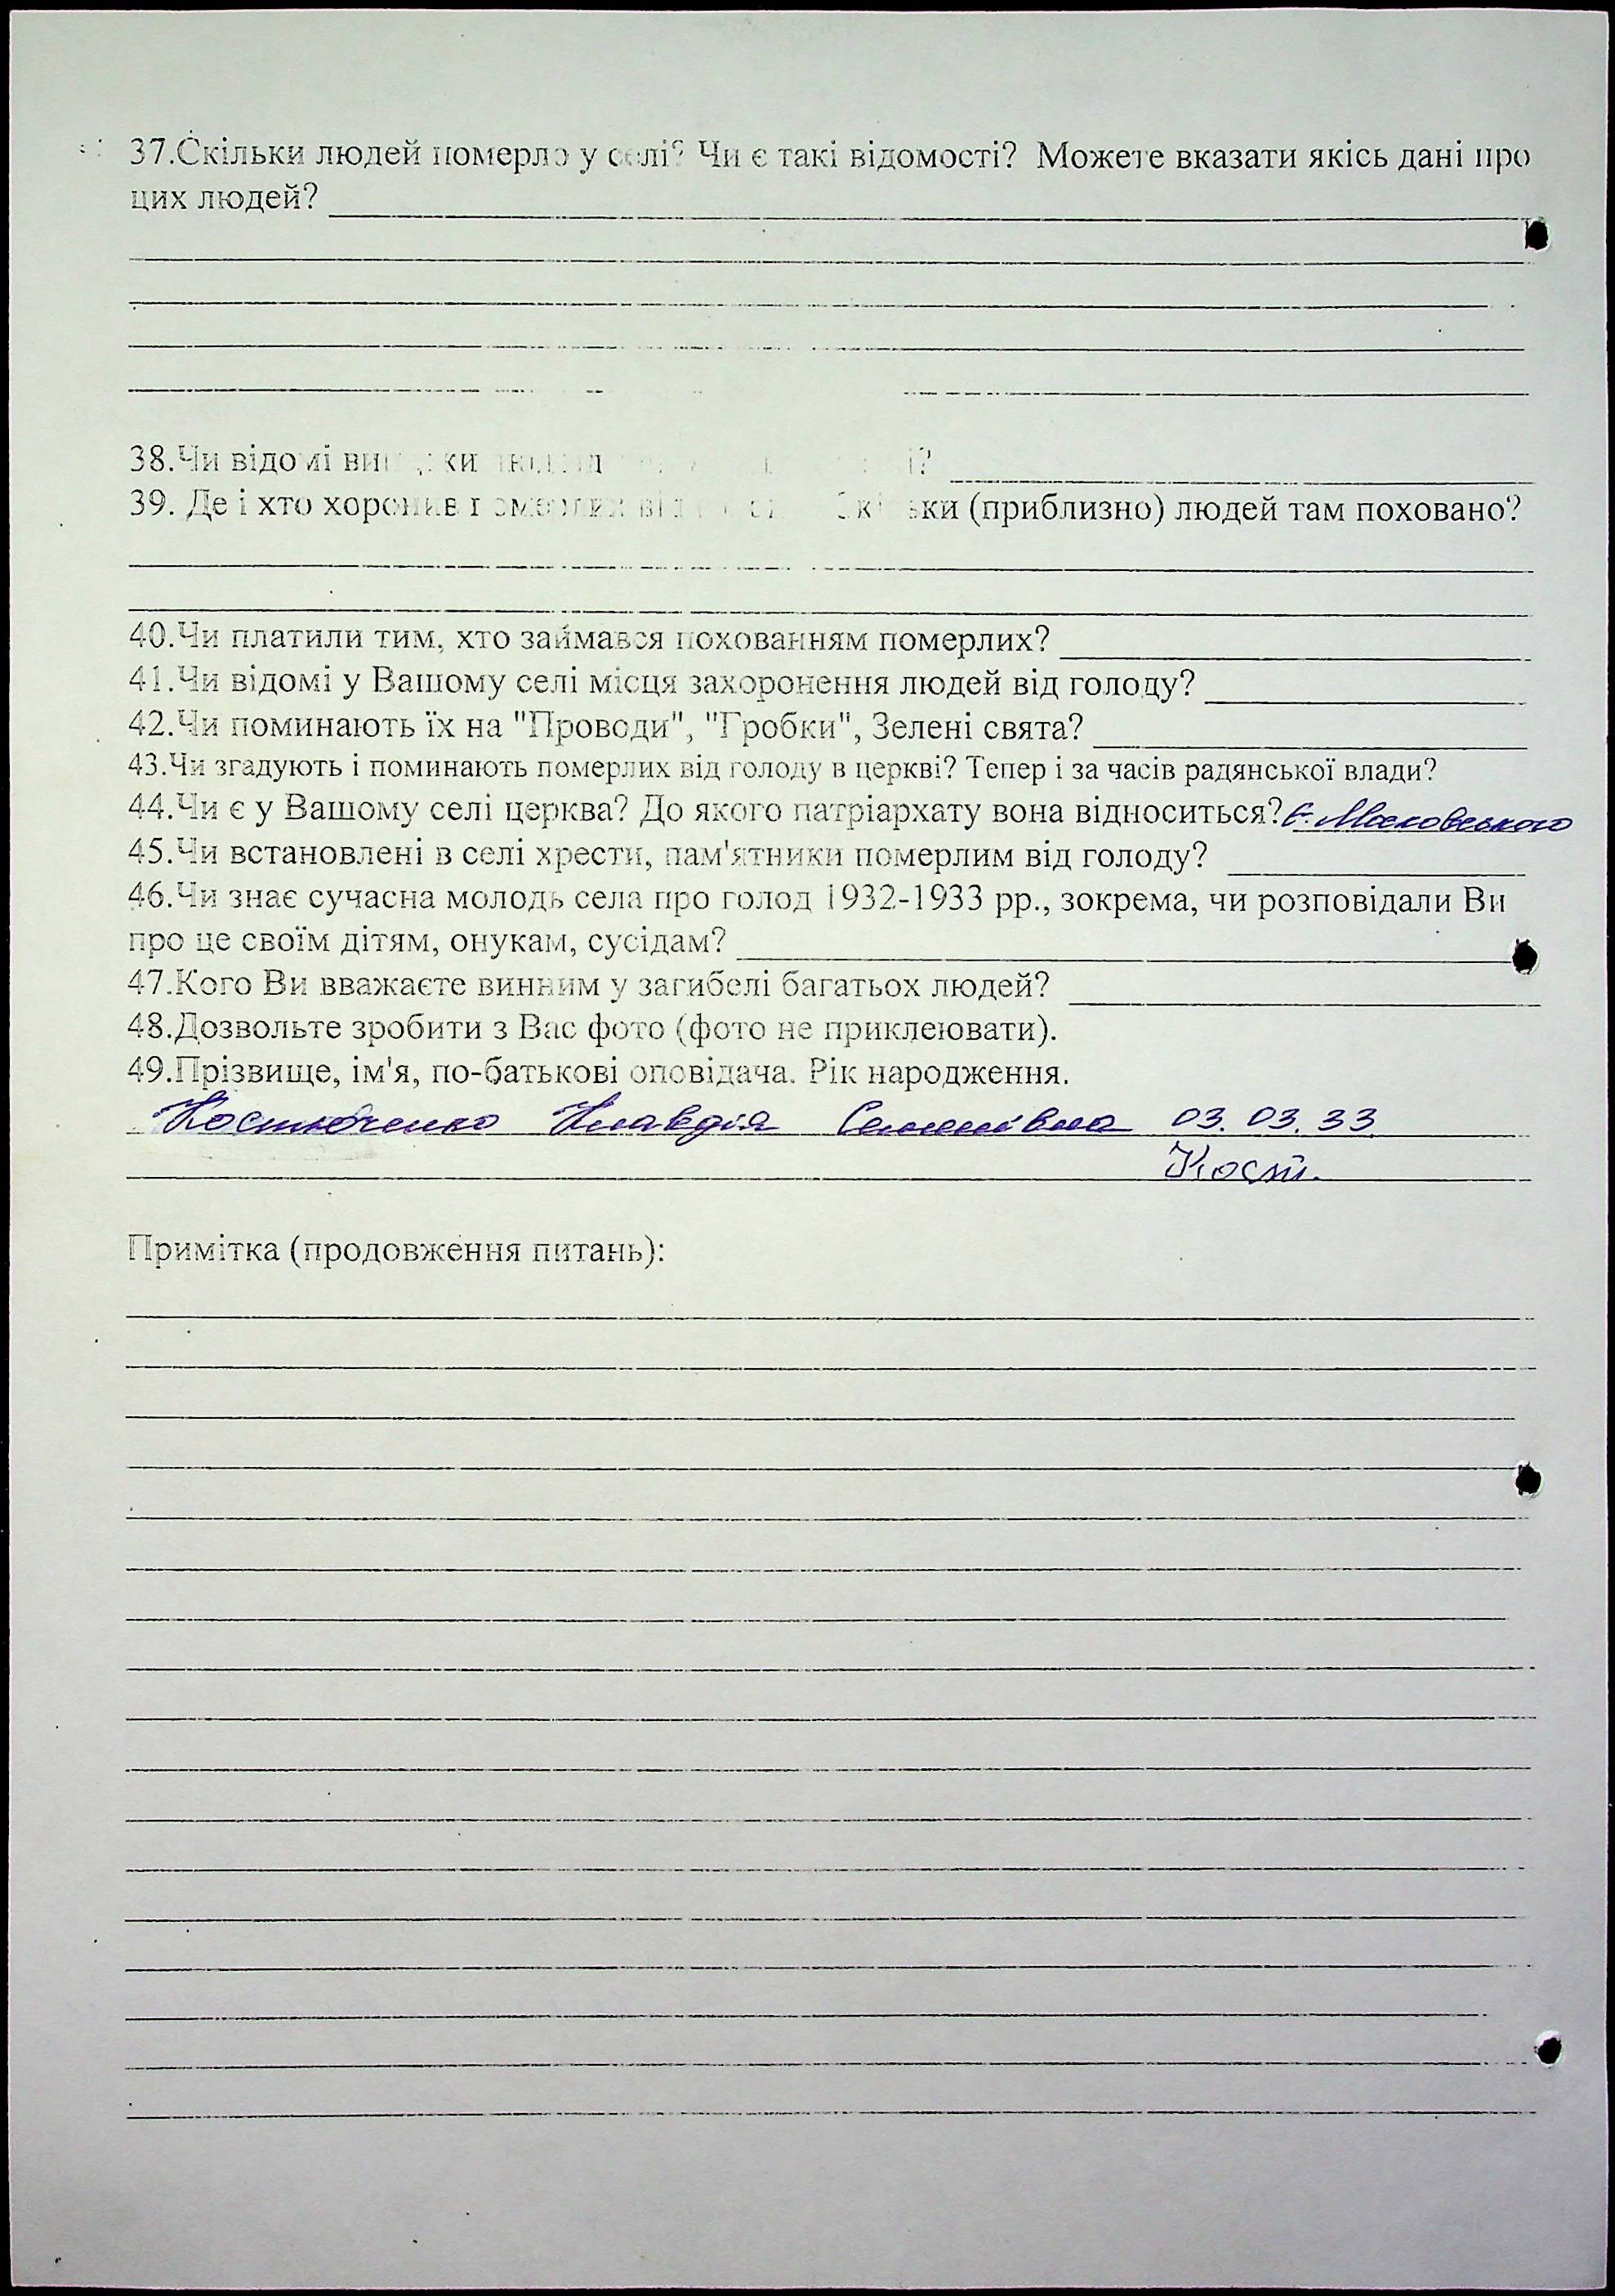 37.Скільки людей померло у селі? Чи є такі відомості? Можете вказати якісь дані про
цих людей?
38.Чи відомі
39. Де і хто хоронив померлих від (приблизно) людей там поховано?
40.Чи платили тим, хто займався похованням померлих?
41.Чи відомі у Вашому селі місця захоронення людей від голоду?
42.Чи поминають їх на "Проводи", "Гробки", Зелені свята?
43.Чи згадують і поминають померлих від голоду в церкві? Тепер і за часів радянської влади?
44.Чи є у Вашому селі церква? До якого патріархату вона відноситься? Є. Московського
45.Чи встановлені в селі хрести, пам'ятники померлим від голоду?
46.Чи знає сучасна молодь села про голод 1932-1933 рр., зокрема, чи розповідали Ви
про це своїм дітям, онукам, сусідам?
47.Кого Ви вважаєте винним у загибелі багатьох людей?
48.Дозвольте зробити з Вас фото (фото не приклеювати).
49.Прізвище, ім'я, по-батькові оповідача. Рік народження.
Костюченко Клавдія Семенівна 03.03.33
Кост.
Примітка (продовження питань):